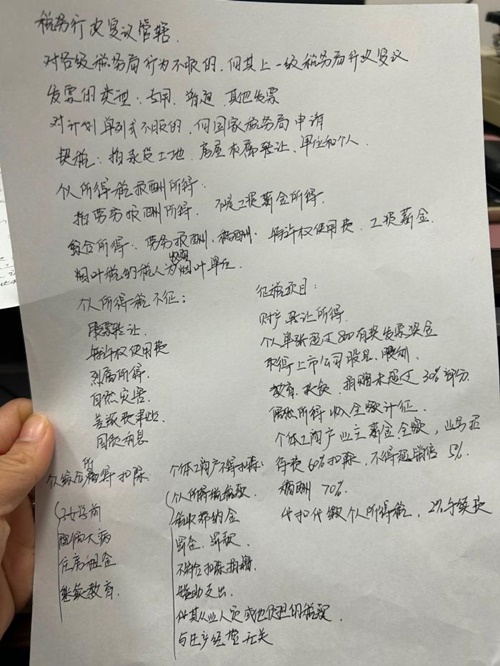 税务行政复议管辖
对各级税务局行为不服的,向其上一级税务局行政复议
发票的类型:专用、普通、其他发票
对计划单列市不服的,向国家税务局申请
契税:指承受土地、房屋权属转让、单位和个人
个人所得税报酬所得:
指劳务报酬所得、不是工资薪金所得。
综合所得:劳务报酬、稿酬、特许权使用费、工资薪金。
烟叶税纳税人为收购烟叶单位。
个人所得税不征:
股票转让、
特许权使用费
烈属所得、
自然灾害
国债利息
征税项目:
财产转让所得
个人单张超过800有奖发票奖金
取得上市公司股息、
教育、扶贫、捐赠未超过30%部分
偶然所得收入全额计征。
个体工商户业主薪金全额,
待费60%扣除,不得超销售5‰
稿酬 70%
代扣代缴个人所得税,2%手续费
个人综合所得扣除
子女学前
大病
住房租金
继续教育、
个体工商户不得扣除:
个人所得税税款
滞纳金
罚金、罚款、
不符合扣除捐赠
赞助支出
代其从业人员或他人负担的税款
与生产经营无关